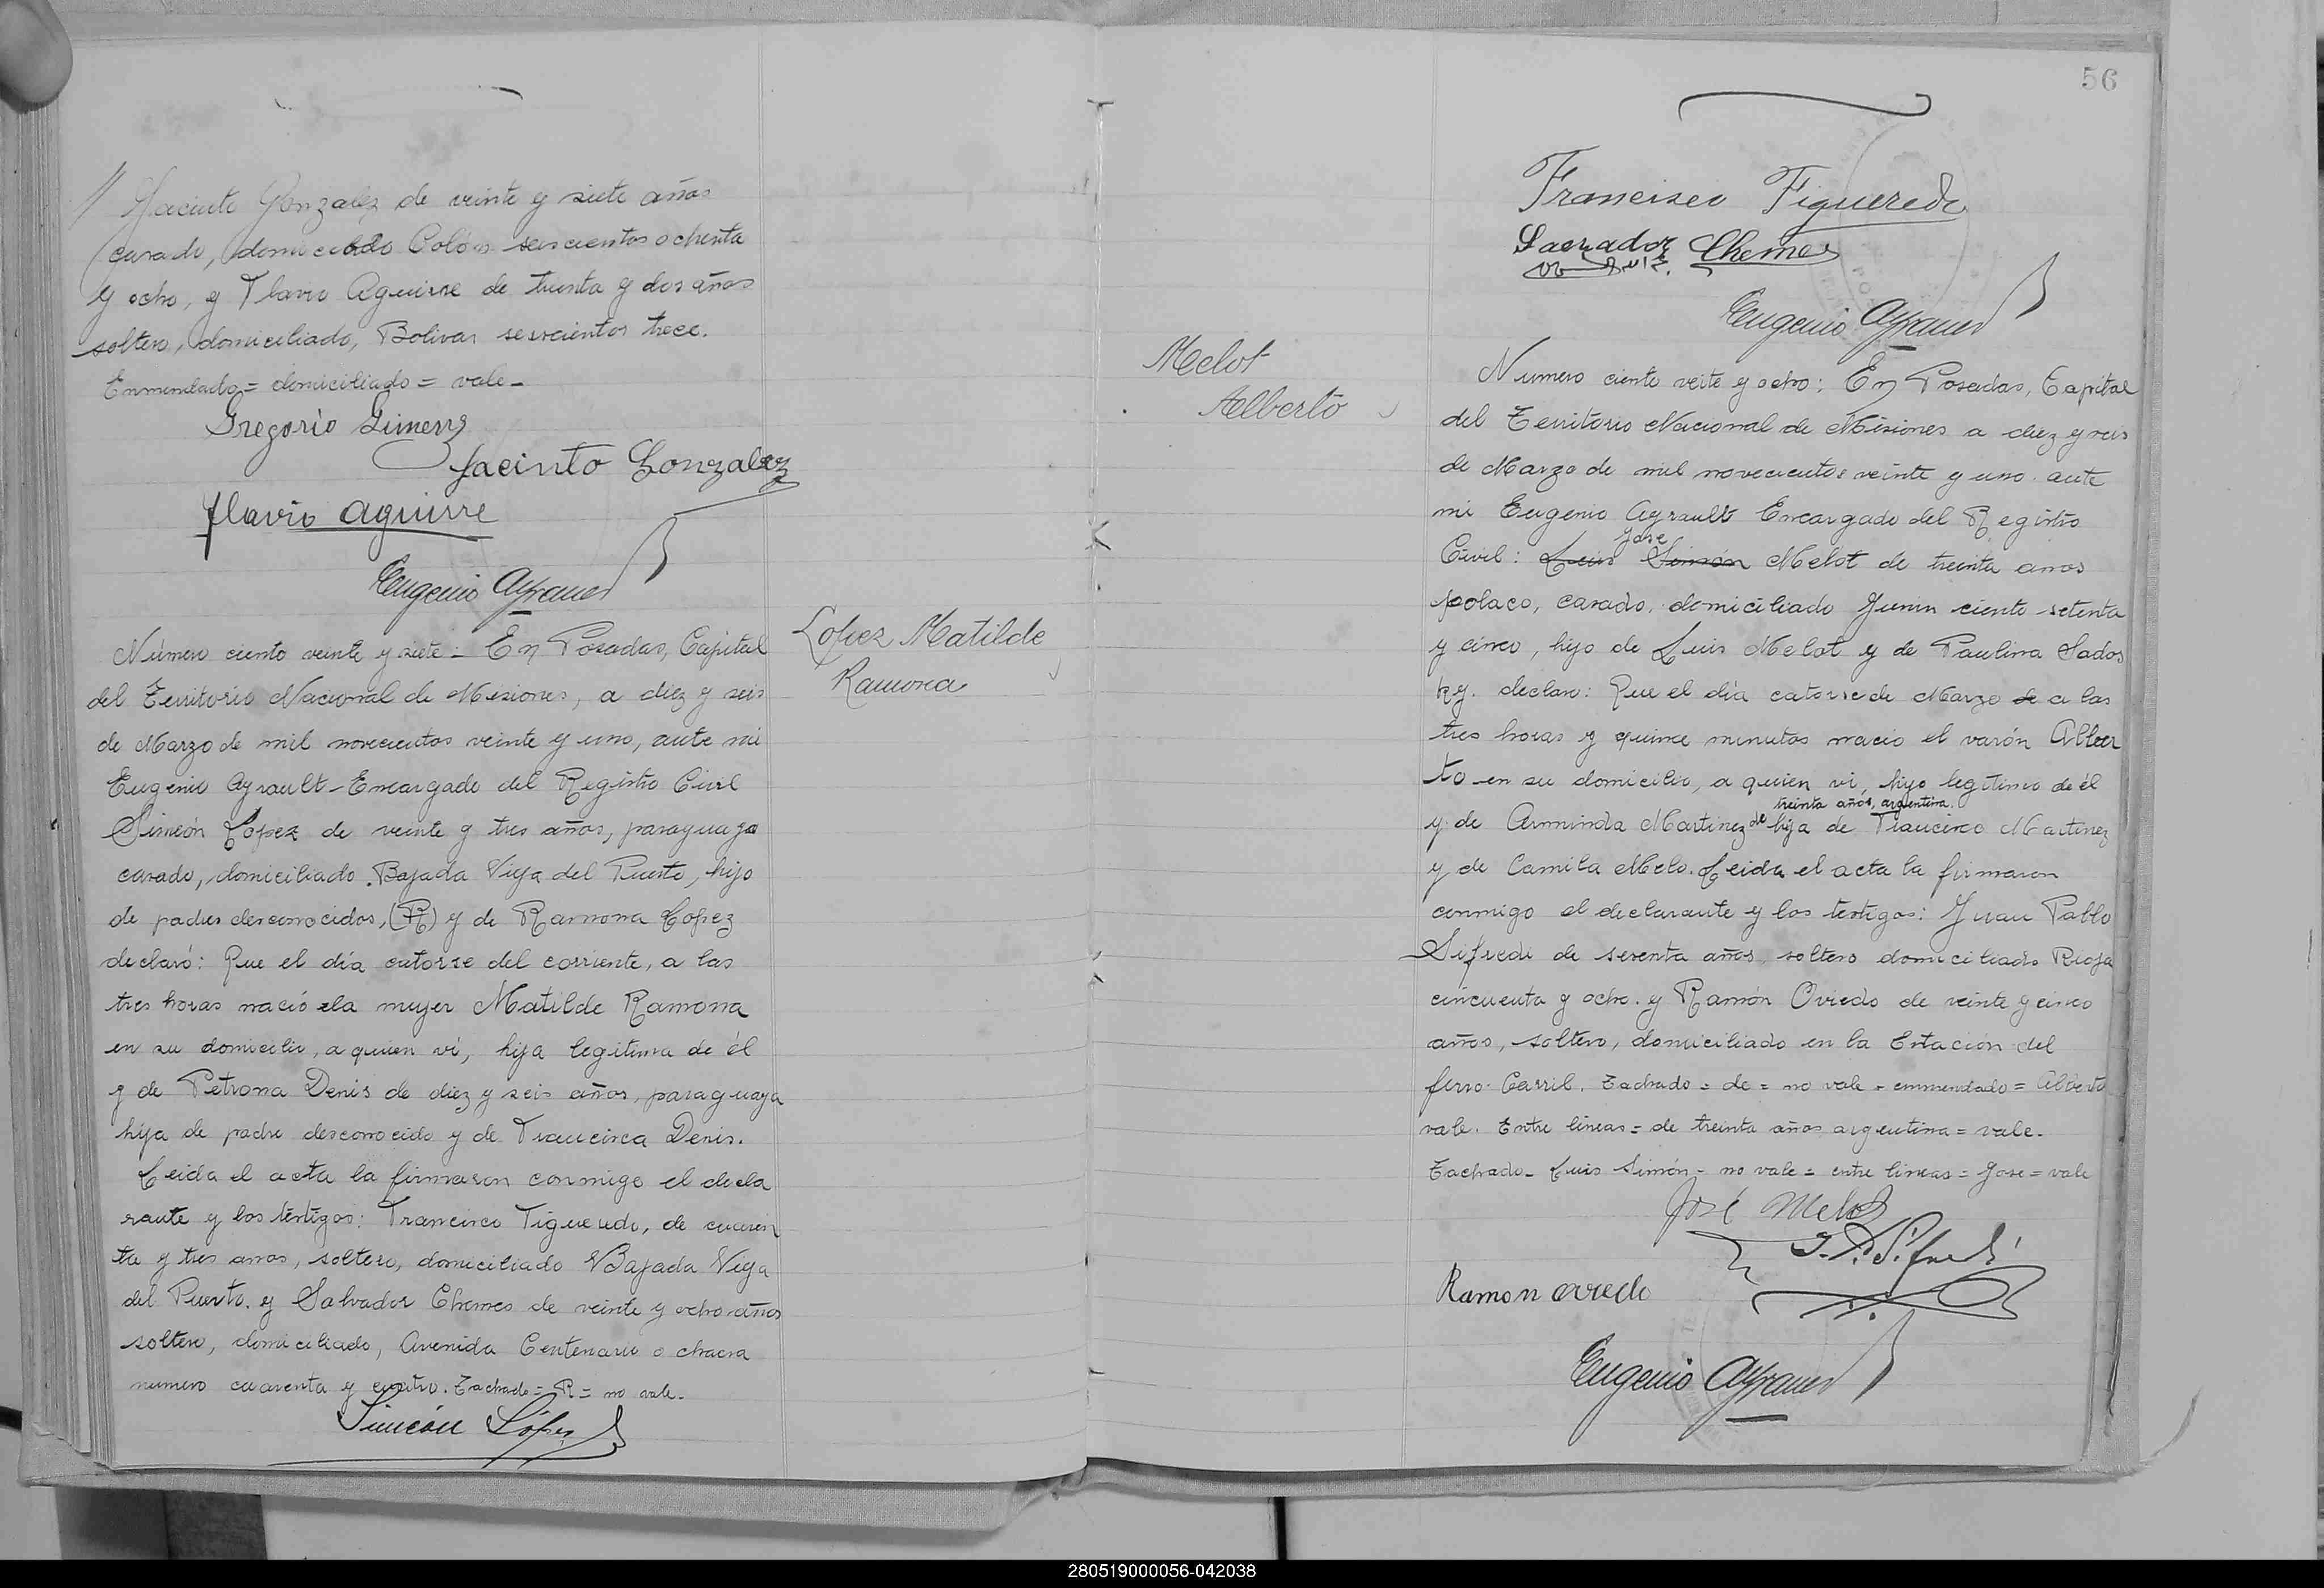 Jacinto Gonzalez de veinte y siete años
casado, domiciliado Colón seiscientos ochenta
y ocho, y Flavio Aguirre de treinta y dos años
soltero, domiciliado, Bolivar seiscientos trece.
Enmendado = domiciliado = vale -
Gregorio Gimenz
Jacinto Gonzalez
flavio aguirre
Eugenio Ayrault
Número ciento veinte y siete = En Posadas, Capital
del Territorio Nacional de Misiones, a diez y seis
de Marzo de mil novecientos veinte y uno, ante mi
Eugenio Ayrault - Encargado del Registro Civil
Simeón Lopez de veinte y tres años, paraguayo
casado, domiciliado Bajada Vieja del Puerto, hijo
de padres desconocidos, (R) y de Ramona Lopez
declaró: Que el día catorse del corriente, a las
tres horas nació ela mujer Matilde Ramona
en su domicilio, a quien vi, hija legitima de él
y de Petrona Denis de diez y seis años, paraguaya
hija de padre desconocido y de Francisca Denis.
Leida el acta la firmaron conmigo el decla
rante y los testigos: Francisco Figueredo, de cuaren
ta y tres años, soltero, domiciliado Bajada Vieja
del Puerto. y Salvador Chemes de veinte y ocho años
soltero, domiciliado, Avenida Centenario o chacra
numero cuarenta y cuatro. Tachado = R = no vale.
Simeón López
Lopez Matilde
Ramona
56
Francisco Figueredo
Salvador Chemes
Eugenio Ayrault
Melot
Alberto
Numero ciento veite y ocho: En Posadas, Capital
del Territorio Nacional de Misiones a diez y seis
de Marzo de mil novecientos veinte y uno. ante
mi Eugenio Ayrault Encargado del Registro
Jose
Civil: Luis Simón Melot de treinta años
polaco, casado, domiciliado Junin ciento setenta
y cinco, hijo de Luis Melot y de Paulina Sados
ky. declaro: Que el día catorse de Marzo de a las
tres horas y quince minutos nacio el varón Alber
to en su domicilio, a quien vi, hijo legitimo de él
treinta años, argentina.
y de Arminda Martinez de hija de Francisco Martinez
y de Camila Melo. Leida el acta la firmaron
conmigo el declarante y los testigos: Juan Pablo
Sifredi de sesenta años, soltero domiciliado Rioja
cincuenta y ocho. y Ramón Oviedo de veinte y cinco
años, soltero, domiciliado en la Estación del
ferro-Carril. Tachado = de = no vale = enmendado = Alberto
vale. Entre lineas = de treinta años argentina = vale.
Tachado - Luis Simón - no vale = entre lineas = Jose = vale
José Melot
J. P. Sifredi
Ramon oviedo
Eugenio Ayrault
280519000056-042038